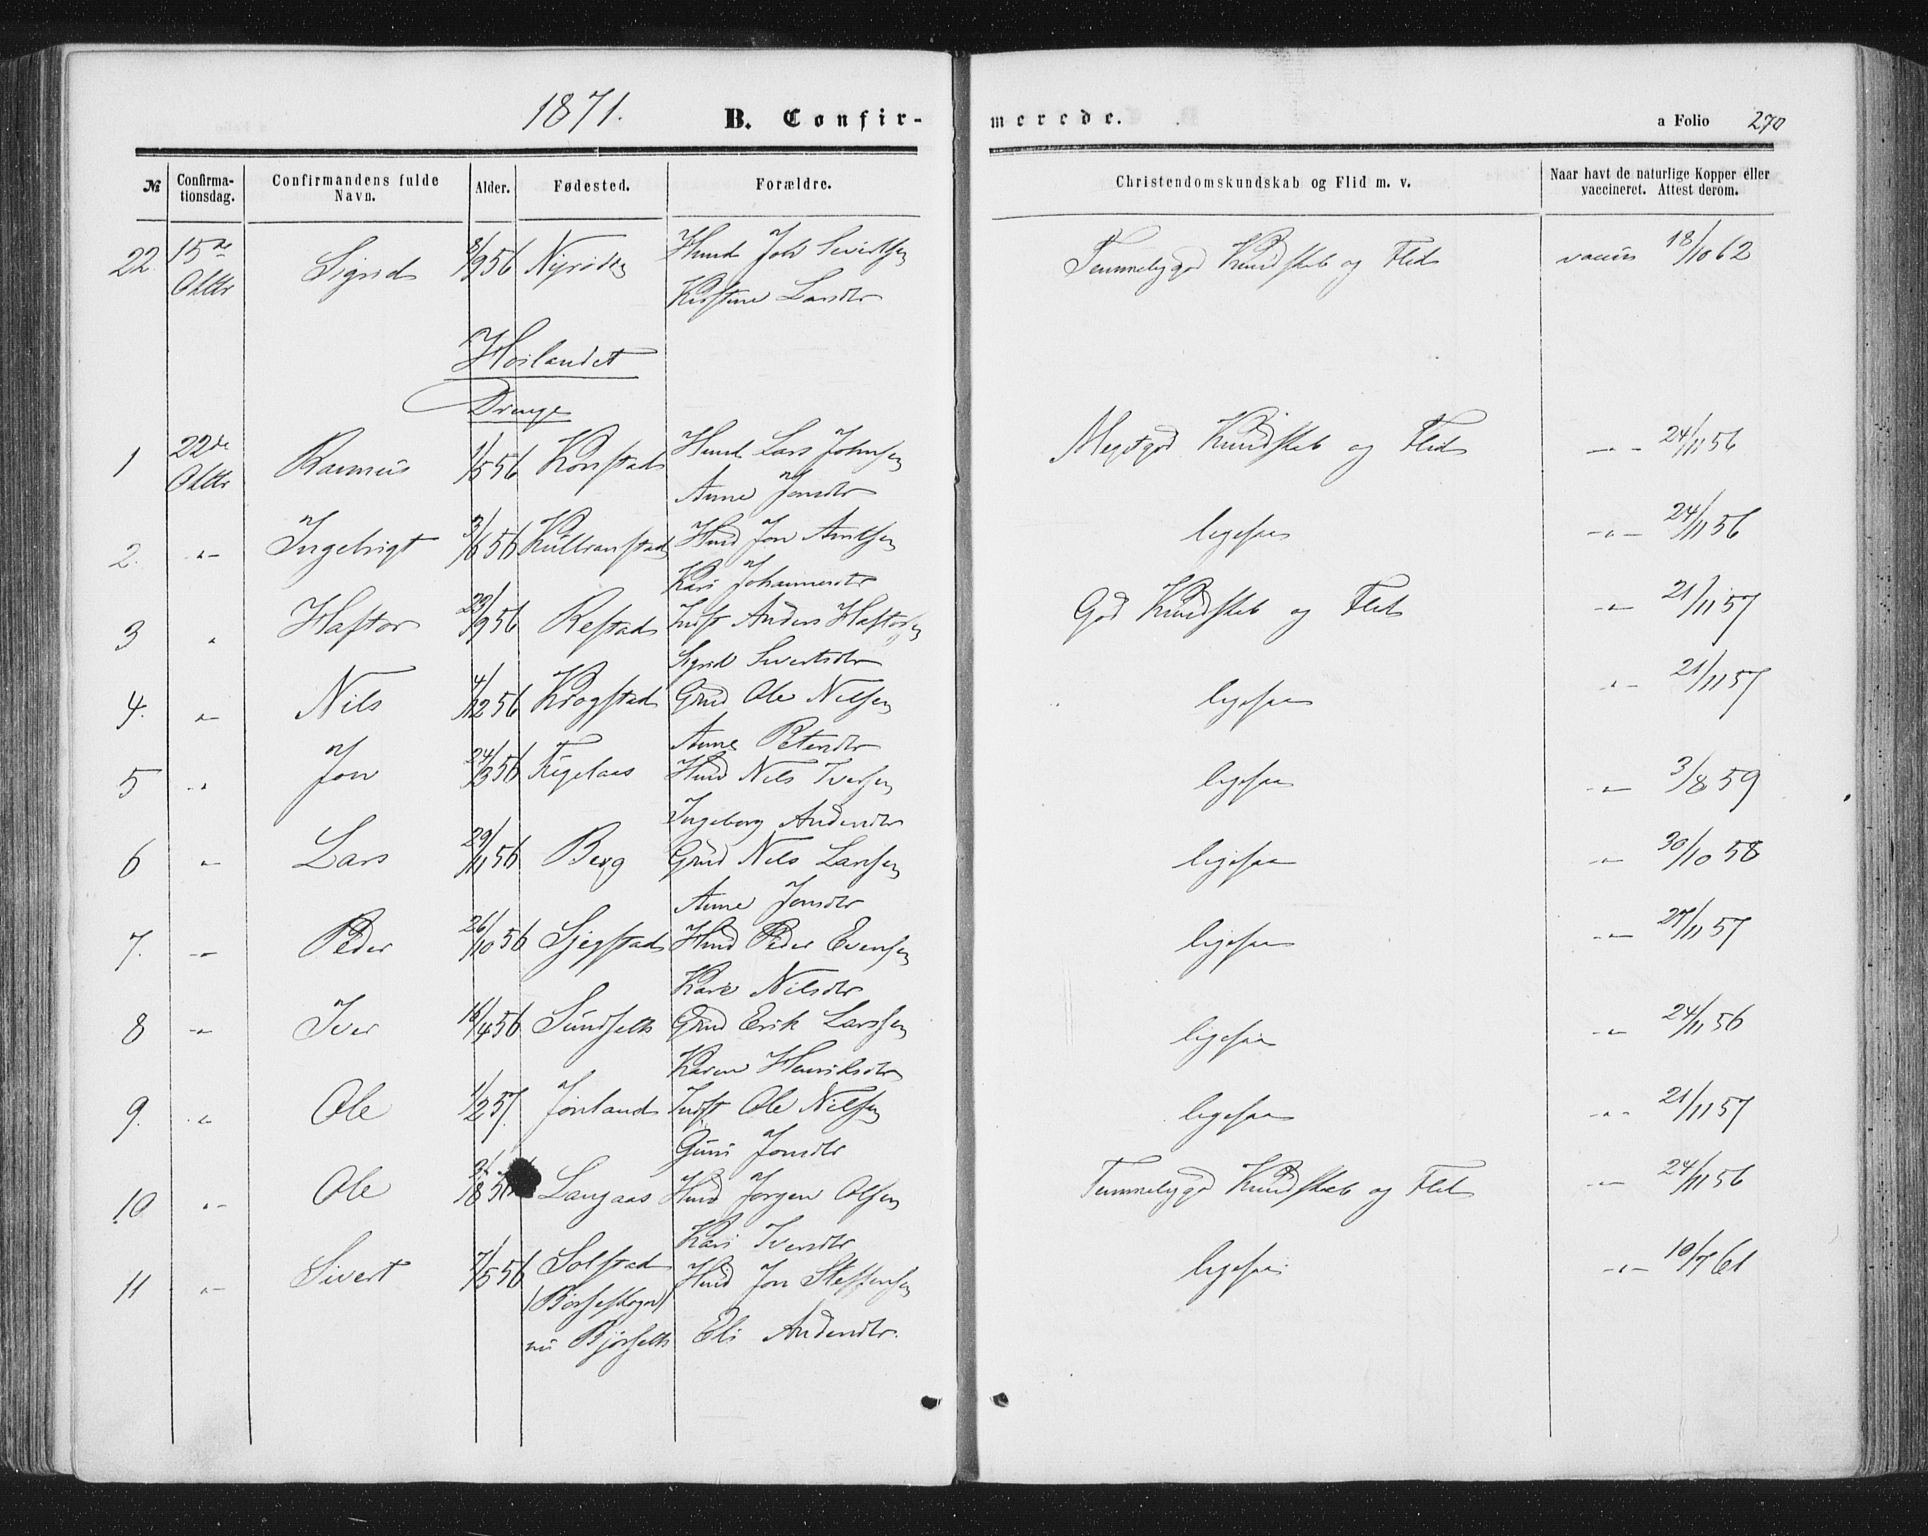 1871.
B. Confir-
merede.
a Folio 270
№ Confirma-tionsdag. Confirmandens fulde Navn. Alder. Fødested. Forældre. Christendomskundskab og Flid m. v. Naar havt de naturlige Kopper eller vaccineret. Attest derom.
22. 15de Oktbr Sigrid 8/9 56 Nyrøden Hmd Joh Sivertsen Temmelig god Kundskab og Flid vaccin 18/10 62
Kirstine Larsdtr
Høilandet
Drenge
1 22de Oktbr Rasmus 1/5 56 Korstad Hmd Lars Johnsen Megetgod Kundskab og Flid -"- 24/11 56
Anne Jonsdtr
2. -"- Ingebrigt 3/6 56 Hmd Jon Arntsen ligesaa -"- 24/11 56
Kari Johannesdtr
3 " Haftor 29/9 56 Refstad Indst Anders Haftorsen God Kundskab og Flid -"- 21/11 57
Sigrid Sivertsdtr
4. -"- Nils 4/12 56 Krogstad Grmd Ole Nilsen ligesaa -"- 21/11 57
Anne Petersdtr
5 -"- Jon 24/3 56 Hmd Nils Iversen ligesaa -"- 3/8 59
Ingeborg Andersdtr
6 -"- Lars 29/11 56 Berg Grmd Nils Larsen ligesaa -"- 30/10 58
Anne Jonsdtr
7. -"- Peder 26/10 56 Sjegstad Hmd Peder Evensen ligesaa -"- 27/11 57
Kari Nilsdtr
8 -"- Iver 16/4 56 Sundseth Grmd Erik Larssen ligesaa -"- 24/11 56
Karen Henriksdtr
9. -"- Ole 1/2 57. Jønland Indst Ole Nilsen ligesaa -"- 21/11 57
Guri Jonsdtr
10. -"- Ole Langaas Hmd Jørgen Olsen Temmelig god Kundskab og Flid -"- 24/11 56
Kari Iversdtr
11 -"- Sivert 7/5 56 Solstad Hmd Jon Steffensen ligesaa -"- 10/7 61
(Børseskogn)
nu Bjørseth Eli Andersdtr.